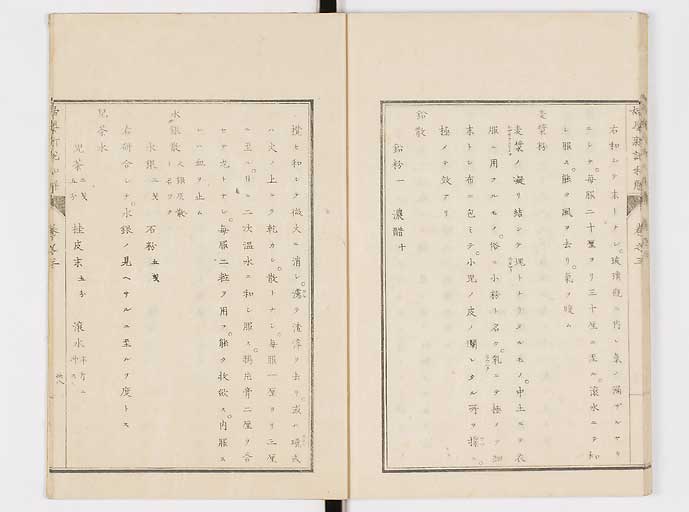 右和シテ末トナシ。玻璃罎ニ内レ氣ノ漏ザルヤウ
ニシテ。毎服二十厘ヨリ三十厘ニ至ル。滾水ニテ和
シ服ス。能ク風ヲ去リ。氣ヲ
麦葉粉
麦葉ノ凝リ結シテ塊トナリタルモノ。中土ニテ衣
服ニ用フルモノ。俗ニ小粉ト名ク。乳ニテ極メテ細
末トシ布ニ包ミテ。小児ノ皮ノ爛レタル所ヲ擦ス。
極メテ效アリ
鉛散
鉛粉一 濃醋十
攪セ和シテ微火ニ消シ。濾テ渣滓ヲ去リ。或ハ
ハ火ノ上ニテ乾カシ。散トナシ。毎服一厘ヨリ三厘
ニ至ル。日ニ二次温水ニ和シ服ス。鴉片膏二厘ヲ合
セテ丸トナシ。毎服二粒ヲ用フ。能ク收斂ス。内服ス
レハ血ヲ止ム
水銀散
水銀二戔 石粉五戔
右研合シテ。水銀ノ見ヘサルニ至ルヲ度トス
児茶水
児茶二戔五分 桂皮末五分 滾水